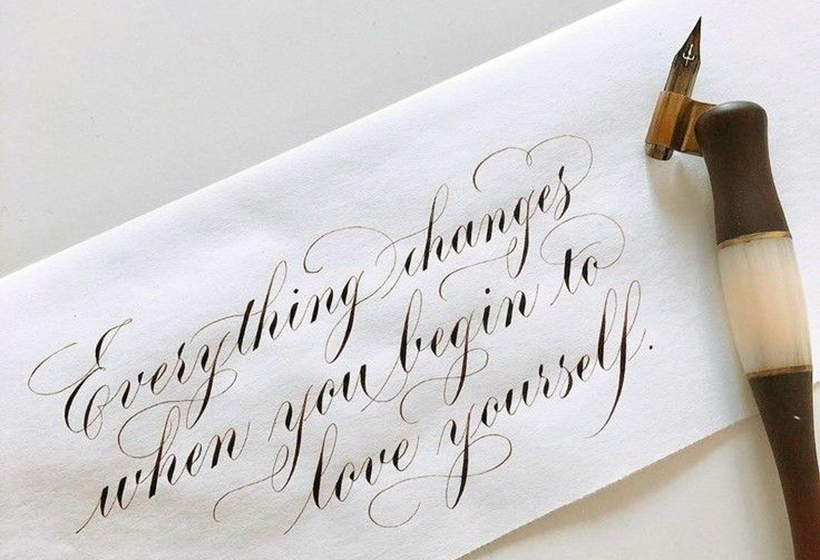 Everything changes
when you begin to
love yourself.